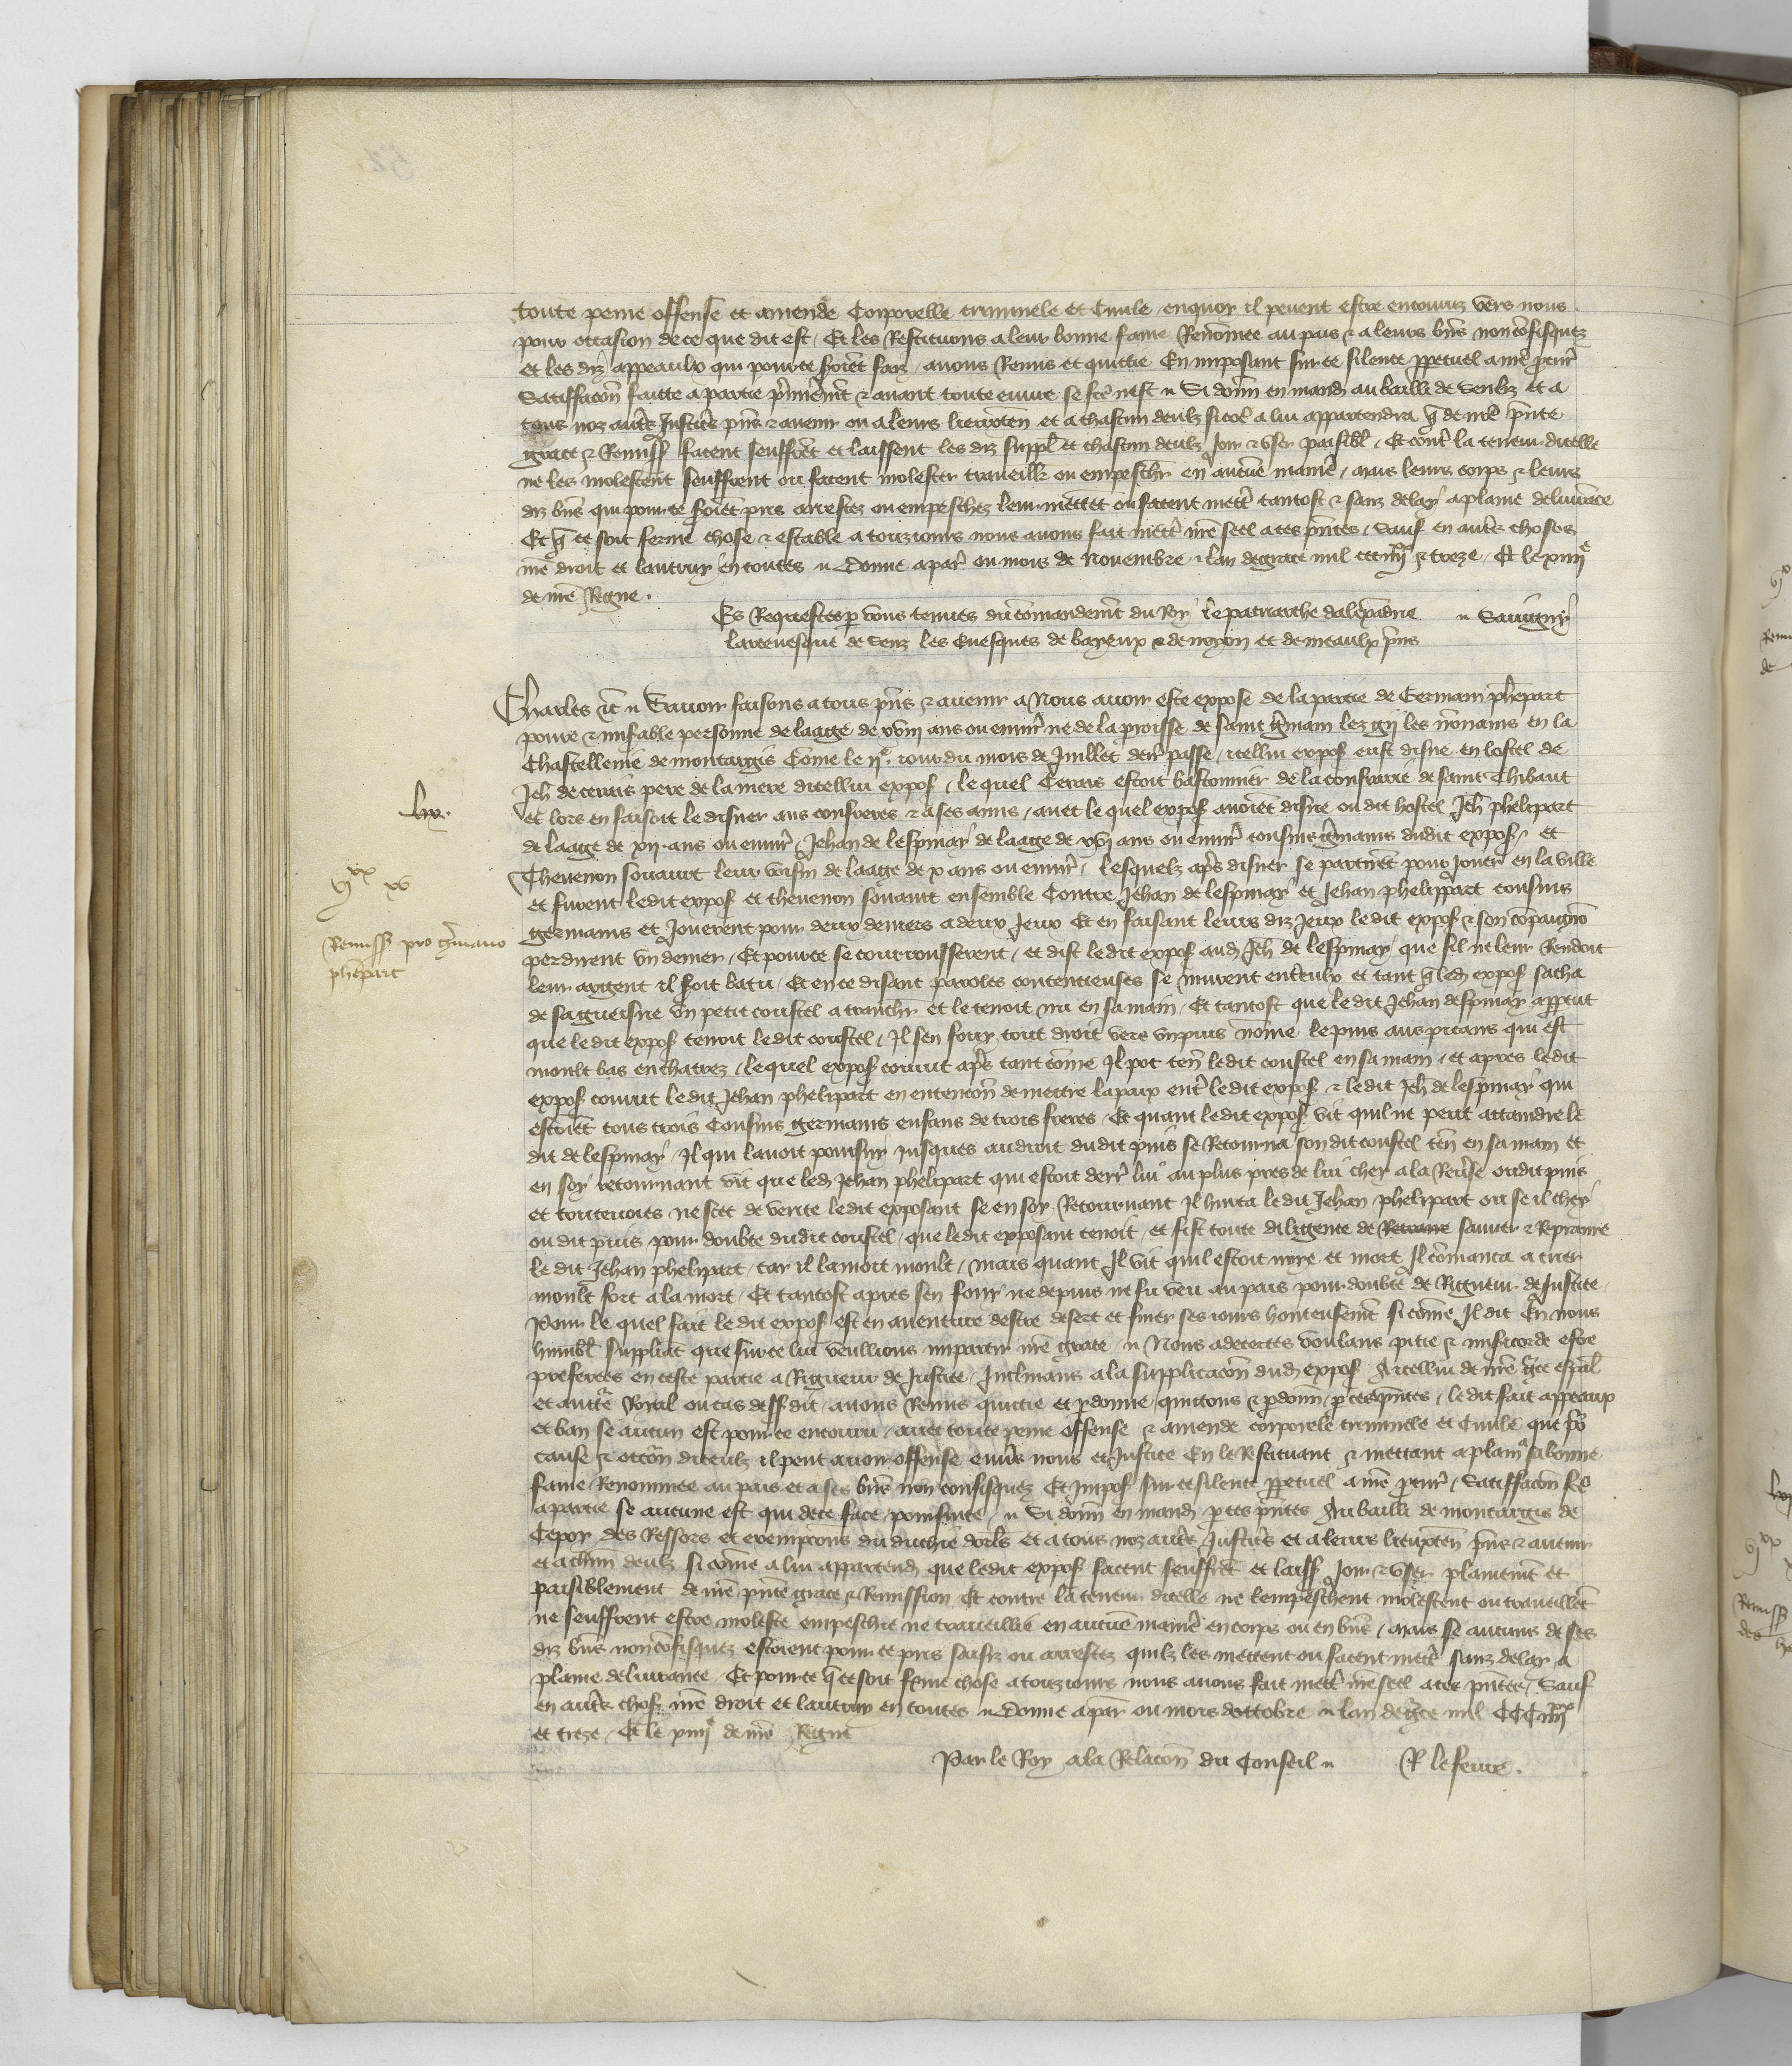 toute peine offense et amende Corporelle criminele et Civile enquoy il pevent estre encouruz vers nous
pour occasion de ce que dit est / Et les Restituons a leur bonne fame Renōmee au pais & a leurs bñs non cōfisquez
et les diz appeaulx qui pour ce seroiēt faiz / avons Remis et quictie En imposant sur ce silence ppetuel a nrē pcur̄
Satiffacōn faicte a partie p̄mierem̄t & avant toute euvre se fcē nest // Si donn̄ en mand au bailli de Senliz et a
tous noz autr̄s Justicrs p̄ns & avenir ou a leurs lieuxten̄ et a chascun deulz sicōē a lui appartendra q̄ de nrē p̄nte
grace & Remiss facent seuffrēt et laissent les diz suppl̄ et chascun deulz Joir & user paisibl̄ / Et contr̄ la teneur dicelle
ne les molestent seuffrent ou facent molester travaill̄r ou empeschr en aucūe manie͂ / mais leurs corps & leurs
diz bñs qui pour ce seroiēt pris arrestez ou empeschez leur mettēt ou facent mettr̄ tantost & sanz delay a plaine delivrāce
Et q̄ ce soit ferme chose & estable a tousiours nous avons fait mettr̄ nr̄e seel a ces p̄ntes / Sauf en autr̄s choses
nr̄e droit et lautruy en toutes // Donne a par̄ ou mois de Novembre / lan de grace mil ccc iiii xx & treze / Et le xiiii e
de nr̄e Regne .
Es Requestes p̱ vous tenues du cōmandem̄t du Roy le patriarche dalexādrie // Savigny
larcevesque de Senz les Evesques de bayeux & de noyon et de meaulx p̄ns
Charles &c̄ // Savoir faisons a tous p̄ns & avenir a Nous avoir este expose de la partie de Germain phēpart
povre & mis̄able personne de laage de xviii ans ou envir̄ ne de la p̱roisse de saint ḡmain lez les nōnains en la
Chastellenie de montargis Cōme le iie. jour du mois de Juillet derr̄ passe / icellui expos̄ eust disne en lostel de
Jeh̄ de cerais pere de la mere dicellui expos̄ / le quel Cerais estoit bastonnier de la confrarie de saint Thibaut
et lors en faisoit le disner aus confreres & a ses amis / avec le quel expos̄ avoiēt disne ou dit hostel Jeh̄ phelipart
lix.
de laage de xii ans ou envir̄ / Jehan de lespinay de laage de xvi ans ou envir̄ cousins ḡmains dudit expos̄ / et
Thevenon sovaut leur voisin de laage de x ans ou envir̄ / lesquelz apr̄s disner se partirēt pour Jouer en la ville
vi xx xv
et furent ledit expos̄ et thevenon sovaut ensemble Contre Jehan de lespinay et Jehan phelippart cousins
germains et Jouerent pour deux deniers a deux Jeux Et en faisant leurs diz Jeux ledit expos̄ & son cōpaignō
Remiss̄ pro ḡmano
phēpart
perdirent un denier / Et pour ce se courroussierent / et dist ledit expos̄ aud̄ Jeh̄ de lespinay que sil ne leur Rendoit
leur argent il seroit batu / Et en ce disant paroles contencieuses se murent entreulx et tant q̄ led̄ expos̄ sacha
de sa gueisne un petit coustel a tranchr̄ et le tenoit nu en sa main / Et tantost que ledit Jehan despinay apperçut
que ledit expos̄ tenoit ledit coustel / Il sen fouy tout droit vers un puis nōme le puis aus pitans qui est
moult bas en chatrez / lequel expos̄ courut apr̄s tant cōme Il pot ten̄ ledit coustel en sa main / et apres ledit
expos̄ courut ledit Jehan phelipart en entencōn de mettre la paix entr̄ ledit expos̄ & ledit Jeh̄ de lespinay qui
estoiēt tous trois Cousins germains enfans de trois freres / Et quant ledit expos̄ vit quil ne peut attaindre le
dit de lespinay / Il qui lavoit poursuy jusques au droit dudit puis se Retourna son dit coustel ten̄ en sa main et
en soy retournant vit que led̄ Jehan phelipart qui estoit derr̄ lui au plus pres de lui chey a la Revērse oudit puis
et toutevoies ne scet de verite ledit exposant se en soy Retournant Il hurta ledit Jehan phelipart ou se il chey
ou dit puis pour doubte dudit coustel / que ledit exposant tenoit / et fist toute diligence de Retraire sauver &
le dit Jehan phelipart / car il lamoit moult / mais quant Il vit quil estoit noye et mort Il cōmança a crier
moult fort a la mort / Et tantost apres sen fouy ne depuis ne fu veu au pais pour doubte de Rigueur de Justice /
Pour le quel fait le dit expos̄ est en aventure destre desert et finer ses jours honteusem̄t si cōme Il dit En nous
humbl̄ suppliāt que sur ce lui veullions impartir nr̄e grace // Nous adecertes voulans pitie & mis̄icorde estre
preferees en ceste partie a Rigueur de Justice / Inclinans a la supplicacōn dud̄ expos̄ A icellui de nr̄e gc̄e esp̄al
et auctē Royal ou cas dessusdit avons Remis quictie et pdonne / quictons & pdonn̄ p̱ ces p̄ntes / le dit fait appeaux
et ban se aucun est pour ce encouru / avec toute peine offense & amende corporele criminele et Civile que p̱
cause & occōn diceulz il peut avoir offense envs nous et Justice En le Restituant & mettant a plain a sa bonne
fame Renommee au pais et a ses bñs non confisquez Et impos̄ sur ce silence ppetuel a nr̄e pcur̄ / Satiffacōn fcē
a partie se aucune est qui de ce face poursuite // Si donn̄ en mand̄ p̱ ces p̄ntes Au bailli de montargis de
Cepoy des Ressors et exempcions du duchie dorl̄s et a tous noz autr̄s Justicrs et a leurs lieuxten̄ p̄ns & avenir
et a chūn deulz si cōme a lui appartend̄ que ledit expos̄ facent seuffrēt et laiss̄ Joir & user plainem̄t et
paisiblement de nr̄e p̄nte grace & Remission Et contre la teneur dicelle ne lempeschent molestent ou travaillēt
ne seuffrent estre moleste empeschie ne travaillie en aucūe manie͂ en corps ou en bñs / mais se aucuns de ses
diz bñs non cōfisquez estoient pour ce pris saisiz ou arrestez quilz les mettent ou facent mettr̄ sanz delay a
plaine delivrance / Et pour ce q̄ ce soit ferme chose a tousiours nous avons fait mettr̄ nr̄e seel a ces p̄ntes / Sauf
en autr̄s chos̄ nr̄e droit et lautruy en toutes // Donne a par̄ ou mois doctobre // lan de gc̄e mil CCC iiii xx
et treze / Et le xiiii e de nr̄e Regne
Par le Roy a la Relacōn du Conseil // R lefevre .